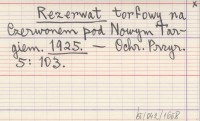 Rezerwat torfowy na
Czerwonem pod Nowym Tar-
giem. 1925. — Ochr. Przyr.
5: 103.